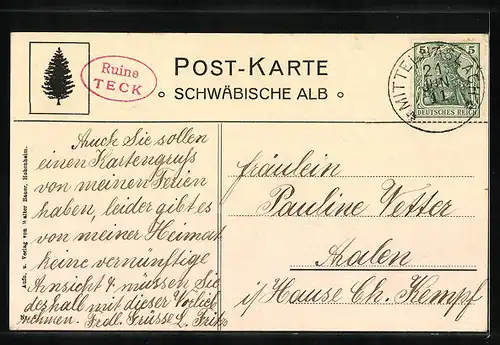 Ruine
TECK
POST-KARTE
SCHWÄBISCHE ALB
5 5
DEUTSCHES REICH
Auch Sie sollen
einen Kartengruss
von meinen Ferien
haben, leider gibt es
von meiner Heimat
keine vernünftige
Ansicht & müssen Sie
deshalb mit dieser Vorlieb
nehmen. Frdl. Grüsse L. Fritz
Fräulein
Pauline Vetter
Aalen
i/Hause Ch. Kempf
Aufn. u. Verlag von Walter Bauer, Hohenheim.